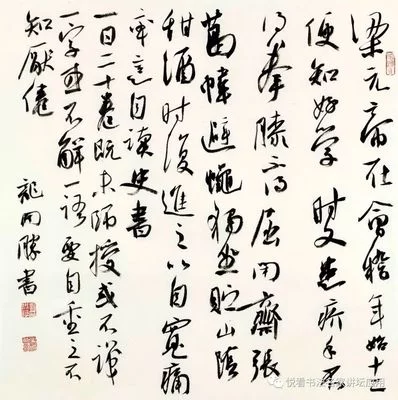 梁元帝在會稽年始十二
便知好学時又患疥手不
得拳膝不得屈闲齋張
葛幃避蠅獨坐貯山陰
甜酒时復進之以自寬痛
率意自讀史書
一日二十卷既未師授或不識
一字或不解一語要自重之不
知厭倦
龍開勝書
悦看书法名家讲坛应用